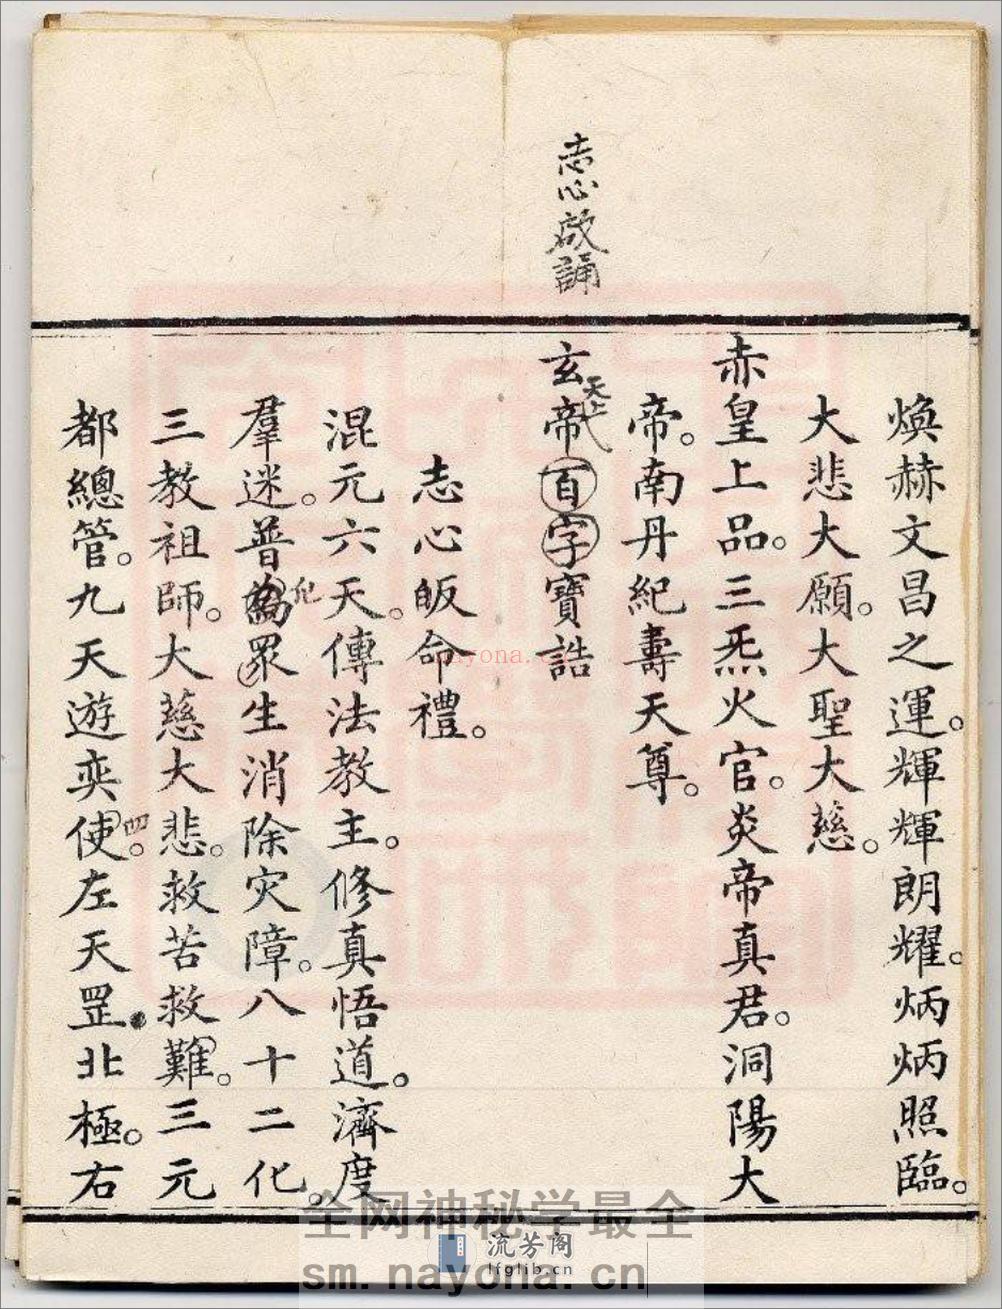 志心啟誦
煥赫文昌之運。輝輝朗耀。炳炳照臨。
大悲大願。大聖大慈。
赤皇上品。三炁火官。炎帝真君。洞陽大
帝。南丹紀壽天尊。
玄帝百字寶誥
天上
志心皈命禮。
混元六天。傳法教主。修真悟道。濟度
羣迷。普為眾生消除灾障。八十二化。
化
三教祖師。大慈大悲。救苦救難。三元
都總管。九天遊奕使。左天罡。北極。右
四
nayona.cn
全网神秘学最全
流芳阁
lfglib.cn
sm.nayona.cn